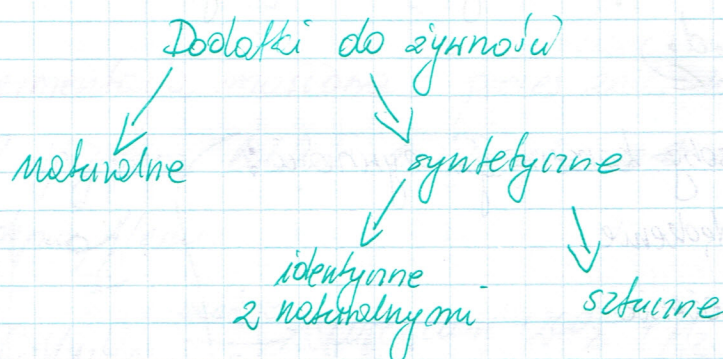 Dodatki do żywności
naturalne
syntetyczne
identyczne
z naturalnymi
sztuczne